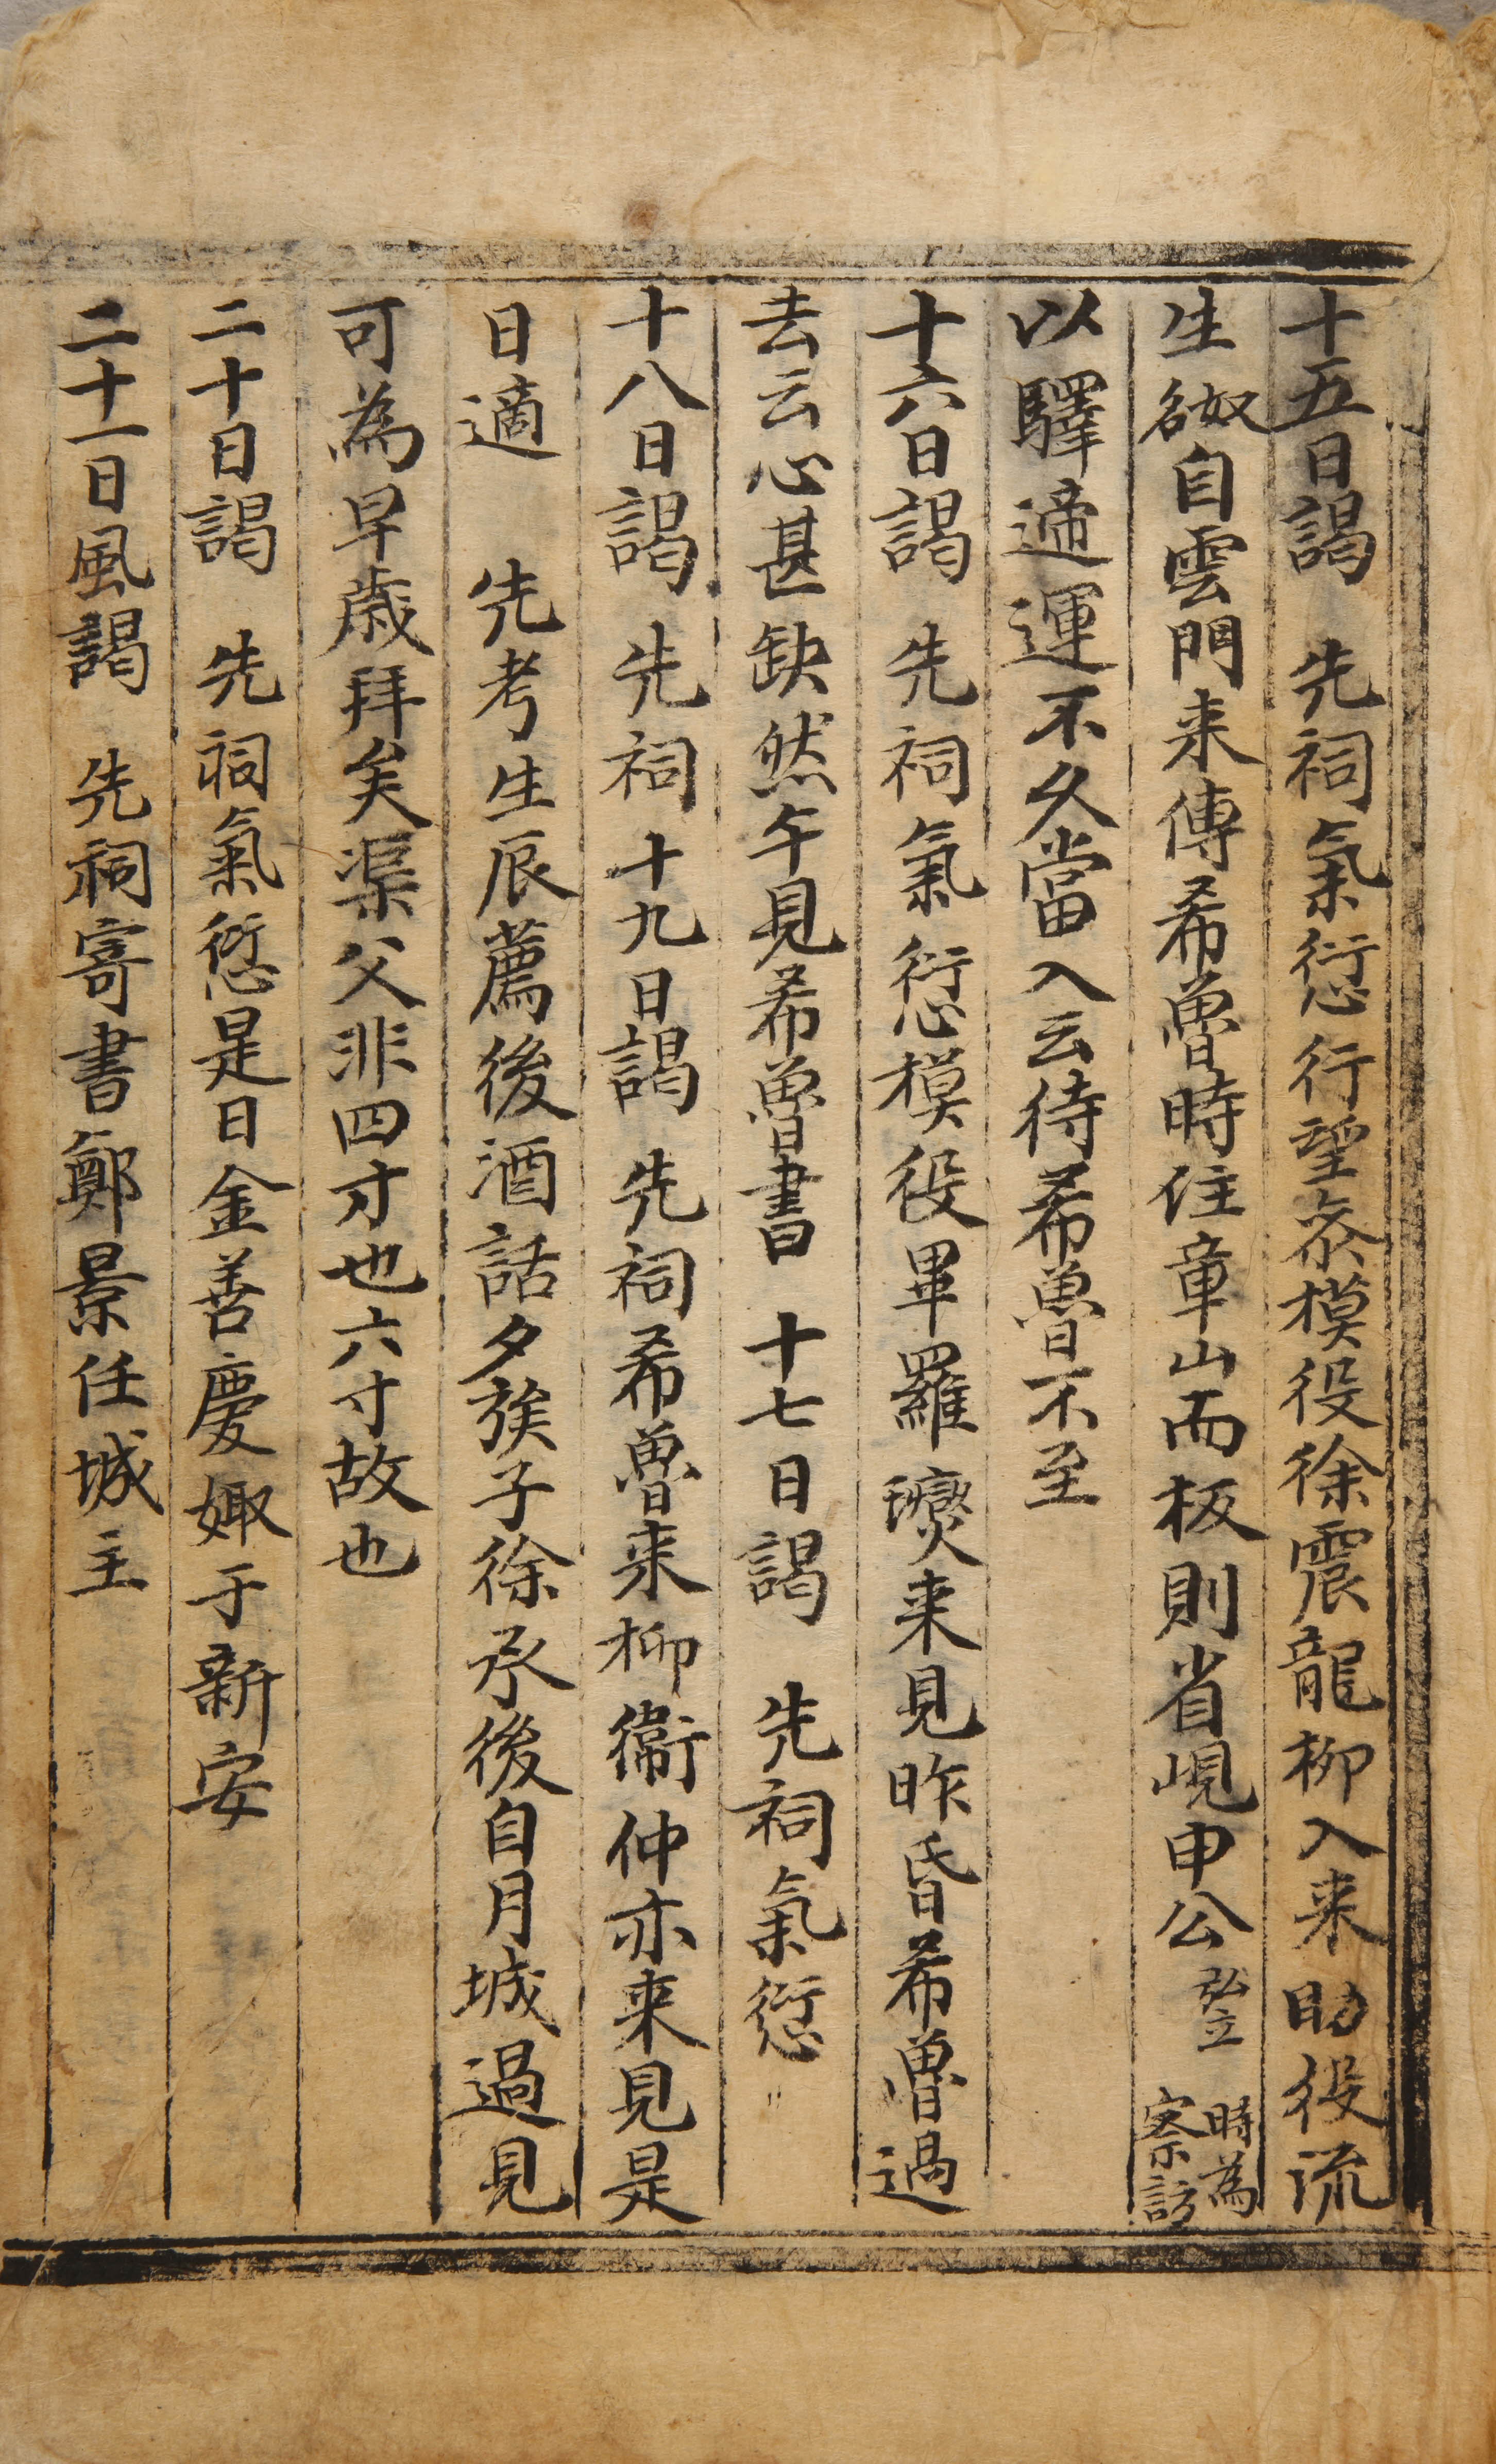 十五日謁 先祠氣愆行望叅模役徐震龍柳入来助役流
生奴自雲門来傳希魯時住章山而板則省峴申公弘立時為察訪
以驛遞運不久當入云待希魯不至
十六日謁 先祠氣愆模役畢羅瓚来見昨昏希魯過
去云心甚缺然午見希魯書 十七日謁 先祠氣愆〃
十八日謁 先祠十九日謁 先祠希魯来柳衞仲亦来見是
日適 先考生辰薦後酒話夕族子徐承後自月城過見
可為早歲拜矣渠父非四寸也六寸故也
二十日謁 先祠氣愆是日金善慶娵于新安
二十一日風謁 先祠寄書鄭景任城主